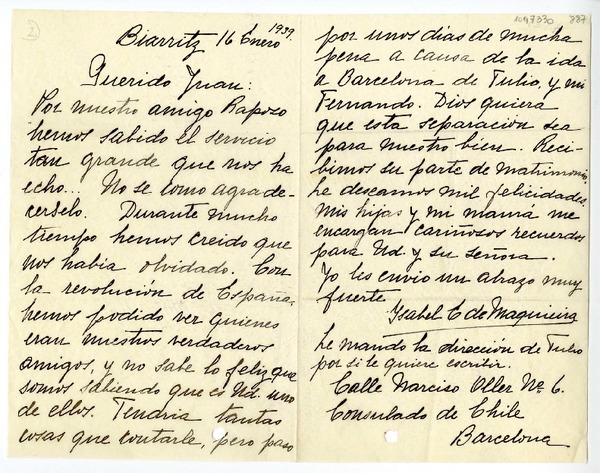 2)
Biarritz 16 Enero 1939.
Querido Juan:
Por nuestro amigo Raposo
hemos sabido el servicio
tan grande que nos ha
echo... No se como agrade-
cerselo. Durante mucho
tiempo hemos creido que
nos habia olvidado. Con
la revolución de España
hemos podido ver quienes
eran nuestros verdaderos
amigos, y no sabe lo feliz que
somos sabiendo que es Ud. uno
de ellos. Tendria tantas
cosas que contarle, pero paso
1047330 887
por unos dias de mucha
pena a causa de la ida
a Barcelona de Tulio, y mi
Fernando. Dios quiera
que esta separacion sea
para nuestro bien. Reci-
bimos su parte de matrimonio,
le deseamos mil felicidades.
Mis hijas y mi mamá me
encargan cariñosos recuerdos
para Ud. y su señora.
Yo les envio un abrazo muy
fuerte
Isabel C de Maquieira
Le mando la dirección de Tulio
por si le quiere escribir.
Calle Narciso Oller Nº 6.
Consulado de Chile
Barcelona